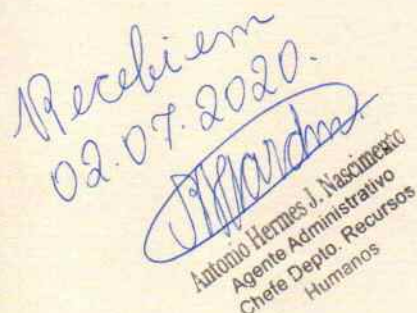 Recebi em
02.07.2020.
Antonio Hermes J. Nascimento
Agente Administrativo
Chefe Depto. Recursos
Humanos